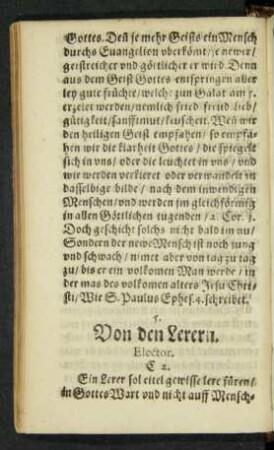 Gottes. Deñ je mehr Geists ein Mensch
durchs Euangelion vberkömt/ je newer/
geistreicher vnd göttlicher er wird Denn
aus dem Geist Gottes entspringen aller
ley gute früchte/ welche zun Galat am 5.
erzelet werden/ nemlich fried freud lieb/
gütigkeit/ sanfftmut/ keuscheit. Weñ wir
den heiligen Geist empfahen/ so empfa-
hen wir die klarheit Gottes/ die spiegelt
sich in vns/ oder die leuchtet in vns/ vnd
wir werden verkleret oder verwandelt in
dasselbige bilde/ nach dem inwendigen
Menschen/ vnd werden jm gleichförmig
in allen Göttlichen tugenden/ 2. Cor. 3.
Doch geschicht solchs nicht bald im nu/
Sondern der newe Mensch ist noch jung
vnd schwach/ nimet aber von tag zu tag
zu/ bis er ein volkomen Man werde/ in
der mas des volkomen alters Jesu Chri-
sti/ Wie S. Paulus Ephes. 4. schreibet.
5.
Von den Lerern.
Elector.
C 2.
Ein Lerer sol eitel gewisse lere füren/
in Gottes Wort vnd nicht auff Mensch-